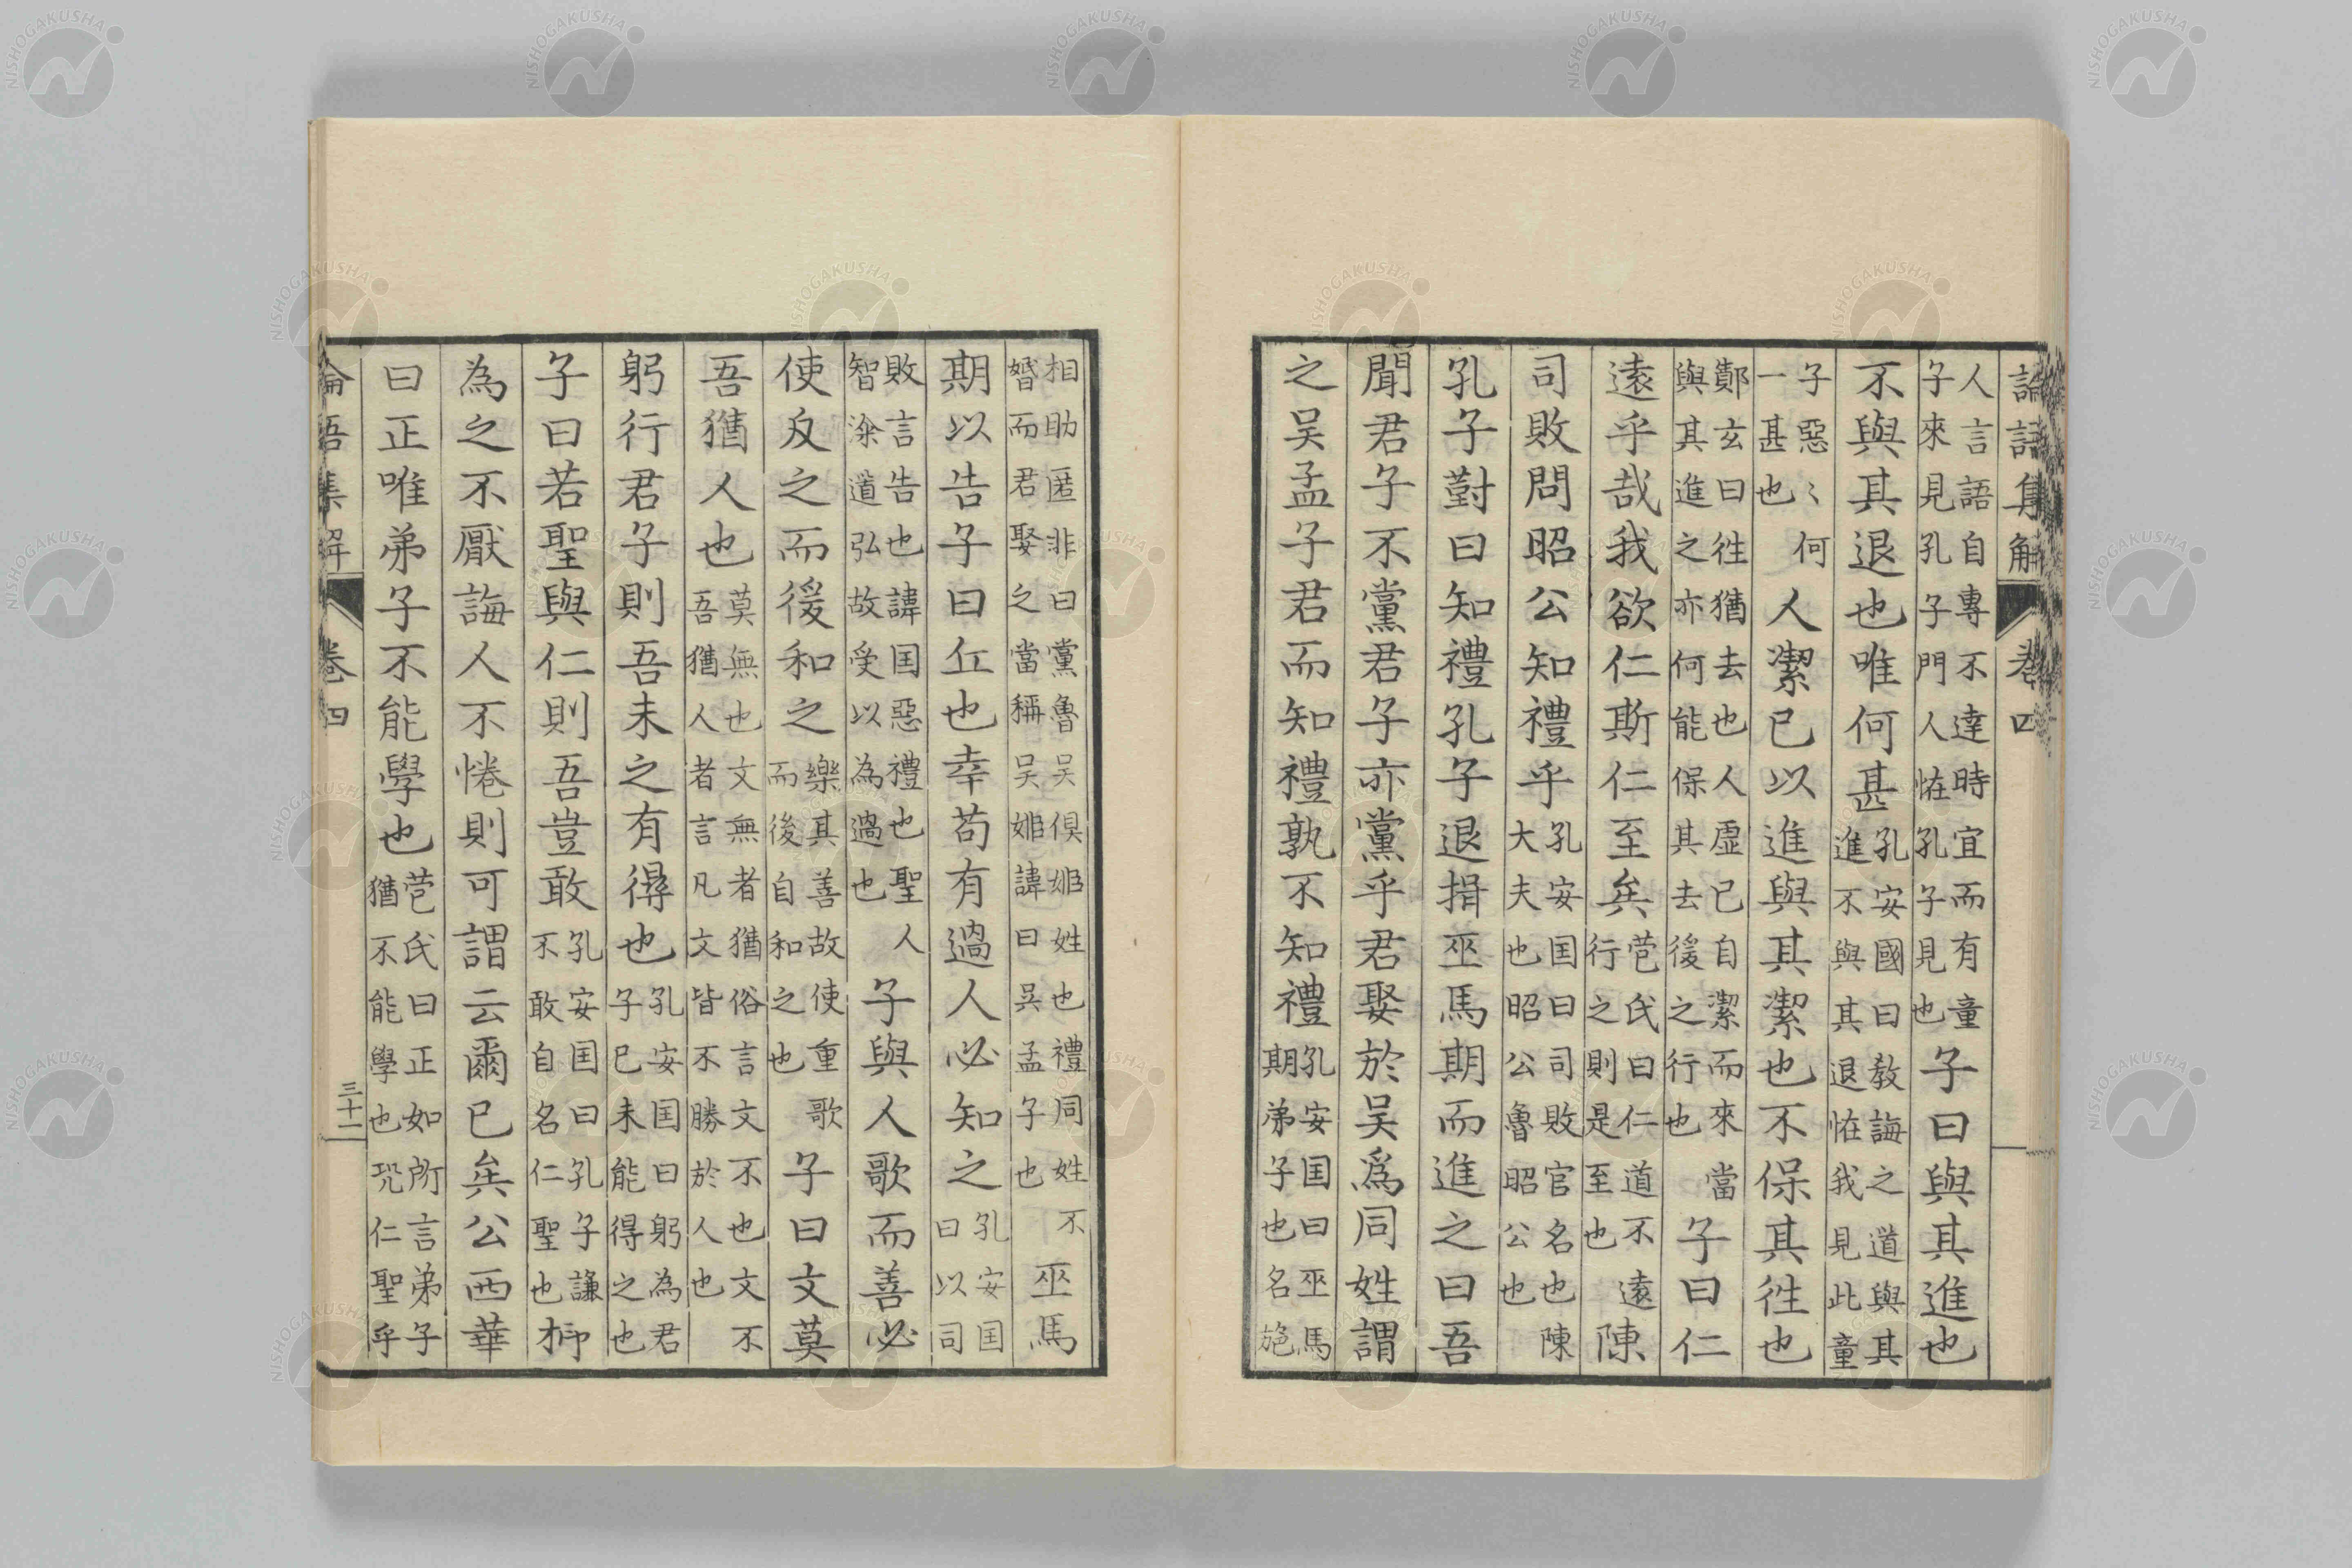 論語集解 卷四
人言語自專不達時宜而有童
子來見孔子門人恠孔子見也
子曰與其進也
不與其退也唯何甚
孔安國曰教誨之道與其
進不與其退恠我見此童
子惡〻何
一甚也
人潔己以進與其潔也不保其往也
鄭玄曰往猶去也人虛己自潔而來當
與其進之亦何能保其去後之行也
子曰仁
遠乎哉我欲仁斯仁至矣
苞氏曰仁道不遠
行之則是至也
陳
司敗問昭公知禮乎
孔安国曰司敗官名也陳
大夫也昭公魯昭公也
孔子對曰知禮孔子退揖巫馬期而進之曰吾
聞君子不黨君子亦黨乎君娶於吴爲同姓謂
之吴孟子君而知禮孰不知禮
孔安国曰巫馬
期弟子也名施
相助匿非曰黨魯吴俱姬姓也禮同姓不
婚而君娶之當稱吴姬諱曰吴孟子也
巫馬
期以告子曰丘也幸苟有過人必知之
孔安国
曰以司
敗言告也諱国惡禮也聖人
智深道弘故受以為過也
子與人歌而善必
使反之而後和之
樂其善故使重歌
而後自和之也
子曰文莫
吾猶人也
莫無也文無者猶俗言文不也文不
吾猶人者言凡文皆不勝於人也
躬行君子則吾未之有得也
孔安国曰躬為君
子已未能得之也
子曰若聖與仁則吾豈敢
孔安国曰孔子謙
不敢自名仁聖也
抑
為之不厭誨人不惓則可謂云爾已矣公西華
曰正唯弟子不能學也
苞氏曰正如所言弟子
猶不能學也况仁聖乎
論語集解 卷四 三十二